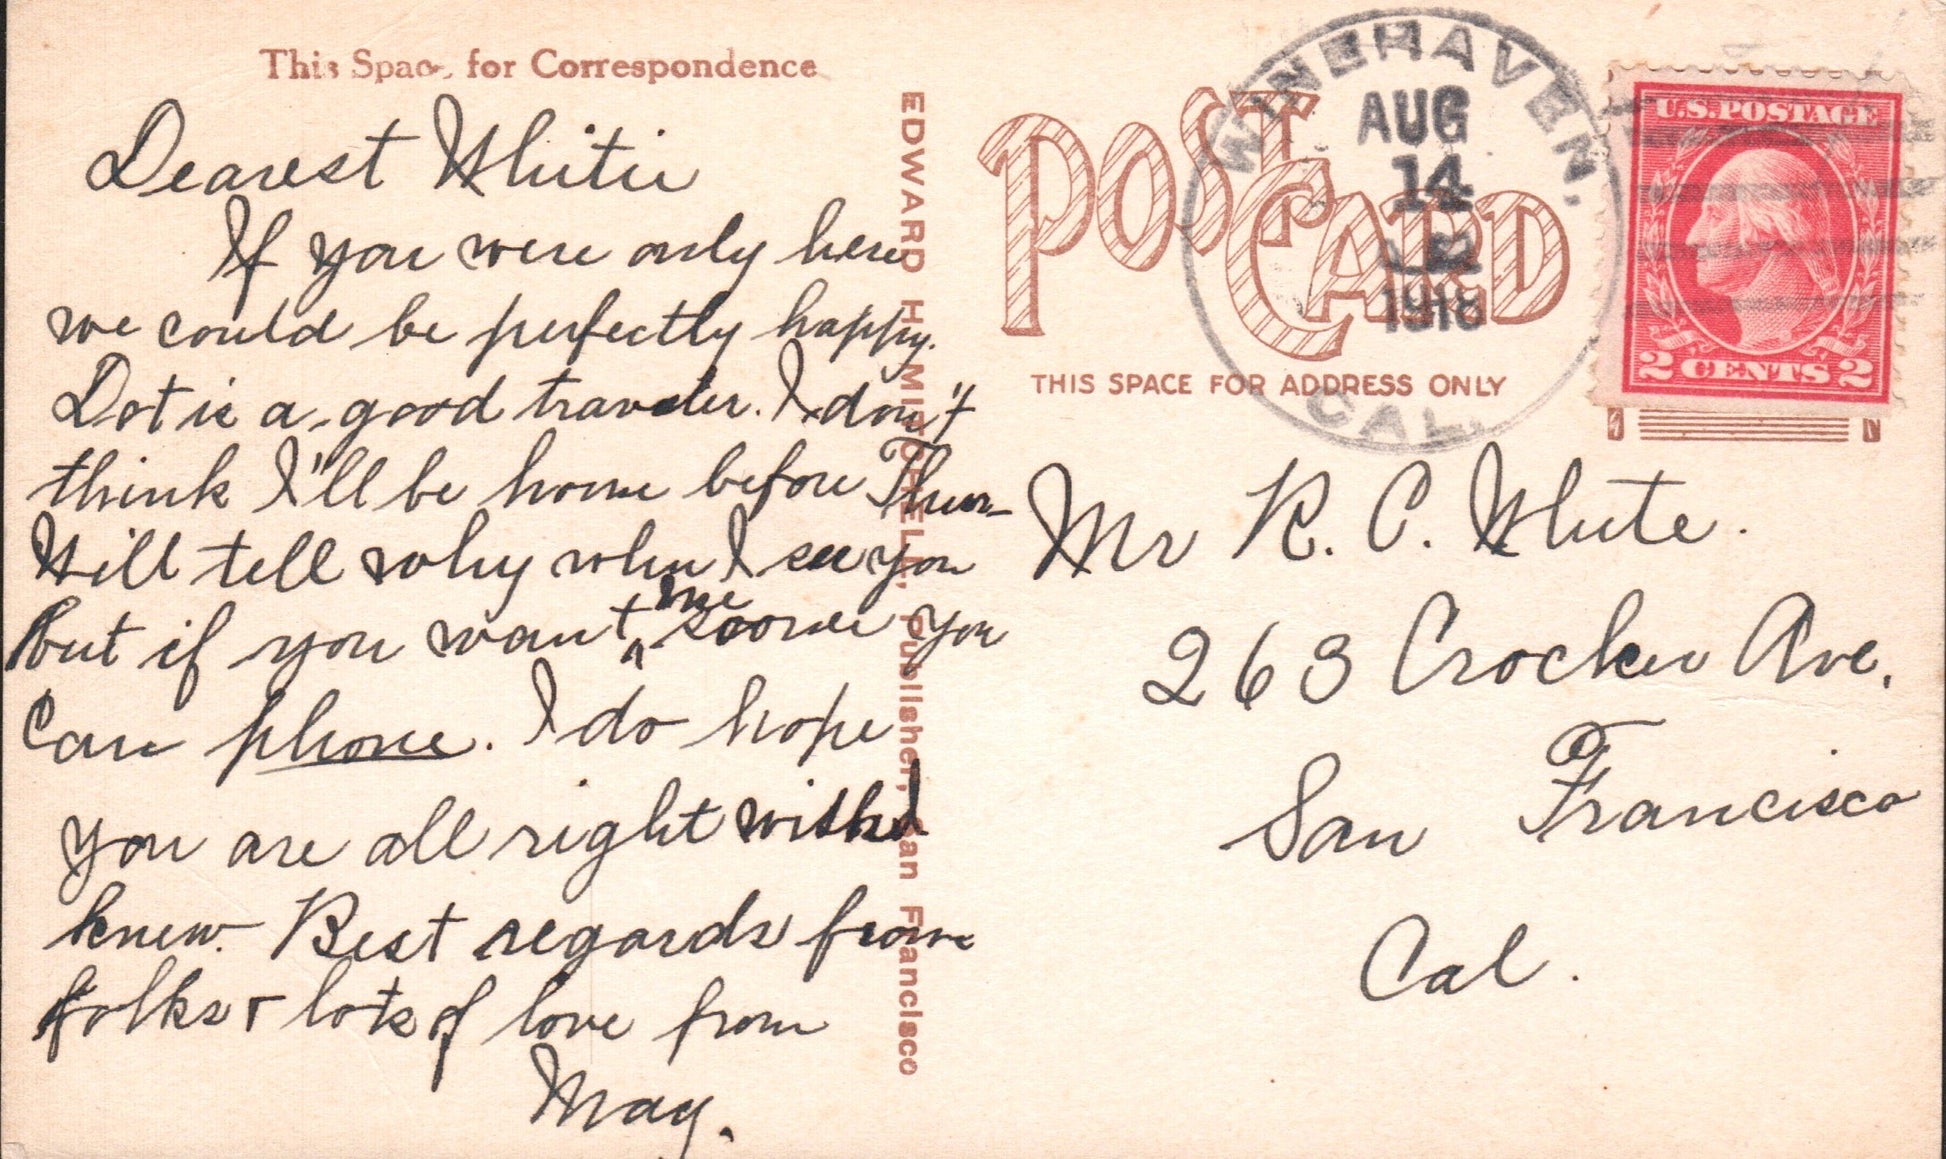 This Space for Correspondence
Dearest Whitie
If you were only here
we could be perfectly happy.
Dot is a good traveler. I don't
think I'll be home before Thur-
Will tell why when I see you
but if you want me sooner you
can phone. I do hope
you are all right wish I
knew. Best regards from
folks + lots of love from
May.
EDWARD H. MITCHELL, Publisher, San Francisco
POST CARD
THIS SPACE FOR ADDRESS ONLY
WINEHAVEN,
AUG
14
1918
CAL.
U.S. POSTAGE
2 CENTS 2
Mr R. C. White.
263 Crocker Ave.
San Francisco
Cal.